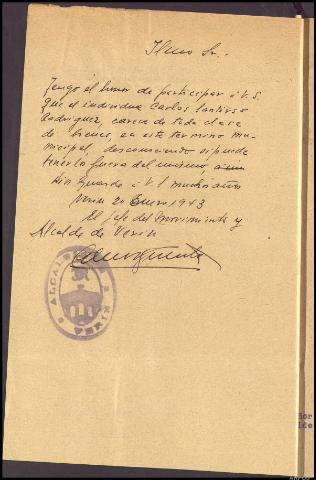 Ilmo Sr.:
Tengo el honor de participar a V.S.
que el individuo Carlos Santirso
Rodriguez, carece de toda clase
de bienes, en este termino mu-
nicipal, desconociendo si puede
tenerlo fuera del mismo,
Dios Guarde a V.S. muchos años
Verin 20 Enero 1943
El jefe del Movimiento y
Alcalde de Verin
ALCALDIA
VERIN